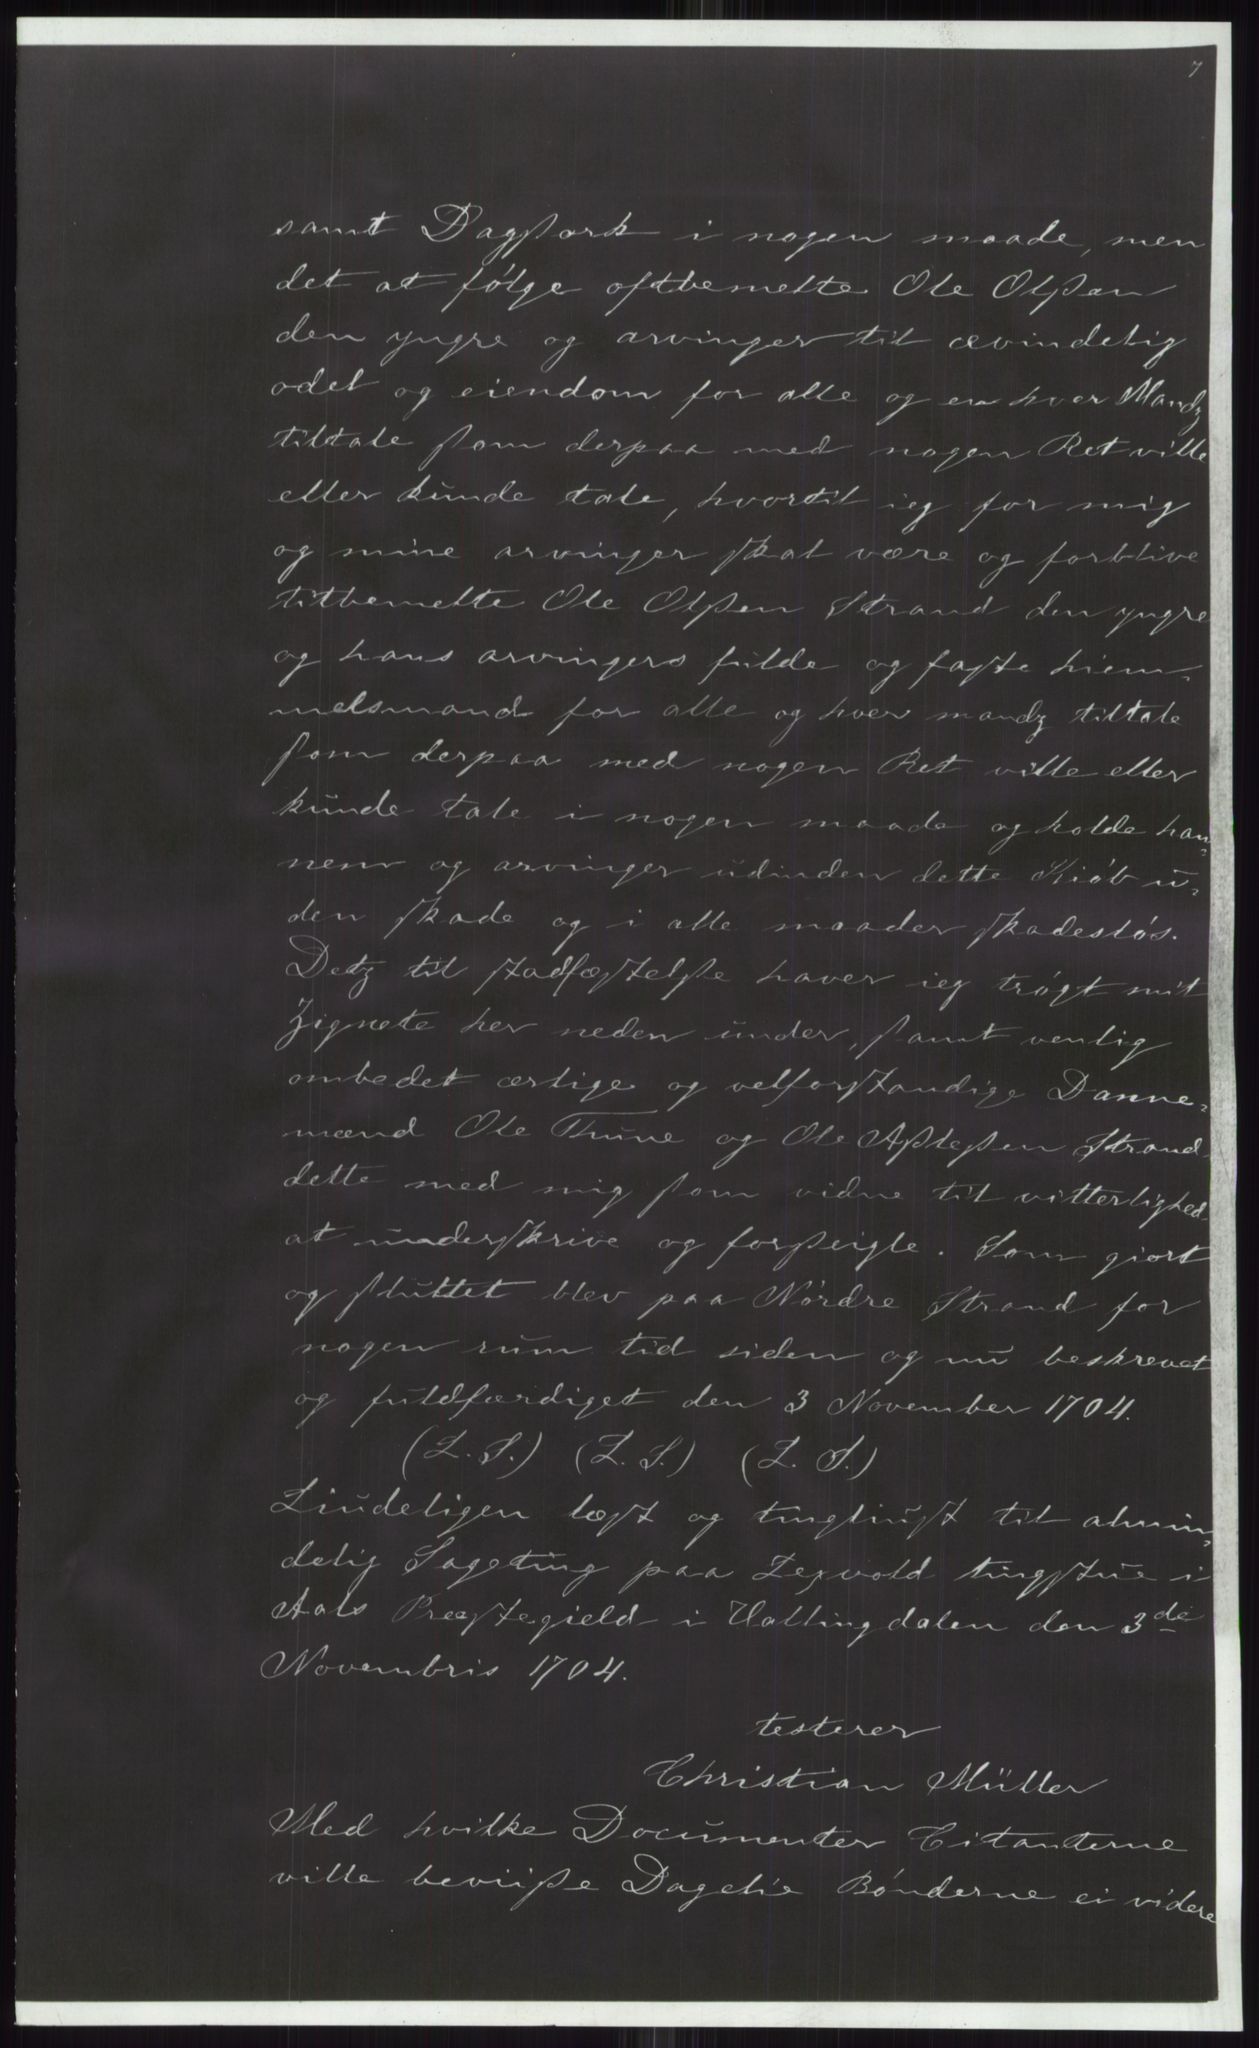 7
samt Dagßark i nogen maade, men
det at følge oftbemelte Ole Olßen
den yngre og arvinger til ævindelig
odel og eiendom for alle og en hver Mandz
tiltale ſom derpaa med nogen Ret ville
eller kunde tale, hvortil ieg for mig
og mine arvinger ſkal være og forblive
titbemelte Ole Olßen Strand den yngre
og hans arvingers fulde og faſte hiem-
melsmand for alle og hver mandz tiltale
ſom derpaa med nogen Ret ville eller
kunde tale i nogen maade og holde han-
nem og arvinger udinden dette Kiøb u-
den ſkade og i alle maader ſkadesløs.
Detz til ſtadfæſtelße haver ieg trøgt mit
Zignete her neden under, ſamt venlig
ombedet ærlige og velforſtandige Danne-
mænd Ole Thune og Ole Aßleßen Strand
dette med mig ſom vidne til vitterlighed
at underſkrive og forſeigle. Som giort
og ſluttet blev paa Nørdre Strand for
nogen rum tid siden og nu beskrevet
og fuldfærdiget den 3 November 1704.
(L. S.) (L. S.) (L. S.)
Liudeligen læſt og tingliuſt til almin-
delig Sageting paa tingſtue i
Aals Præſtegield i Hallingdalen den 3de
Novembris 1704.
testerer
Christian Müller
Med hvilke Documenter Citanterne
ville beviiße Dagelie Bønderne ei videre